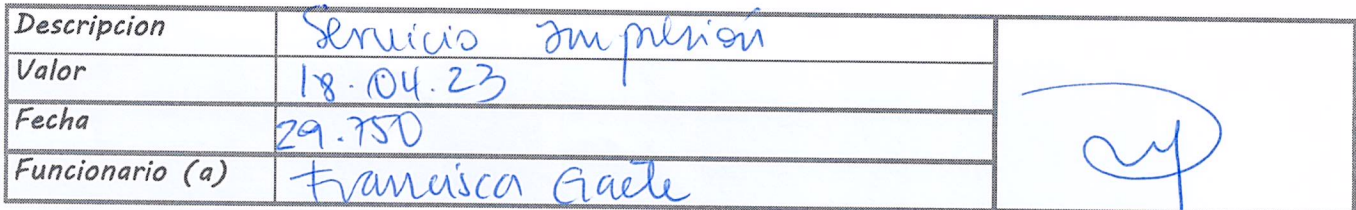 Descripcion Servicio Impresión
Valor 18.04.23
Fecha 29.750
Funcionario (a) Francisca Gaete